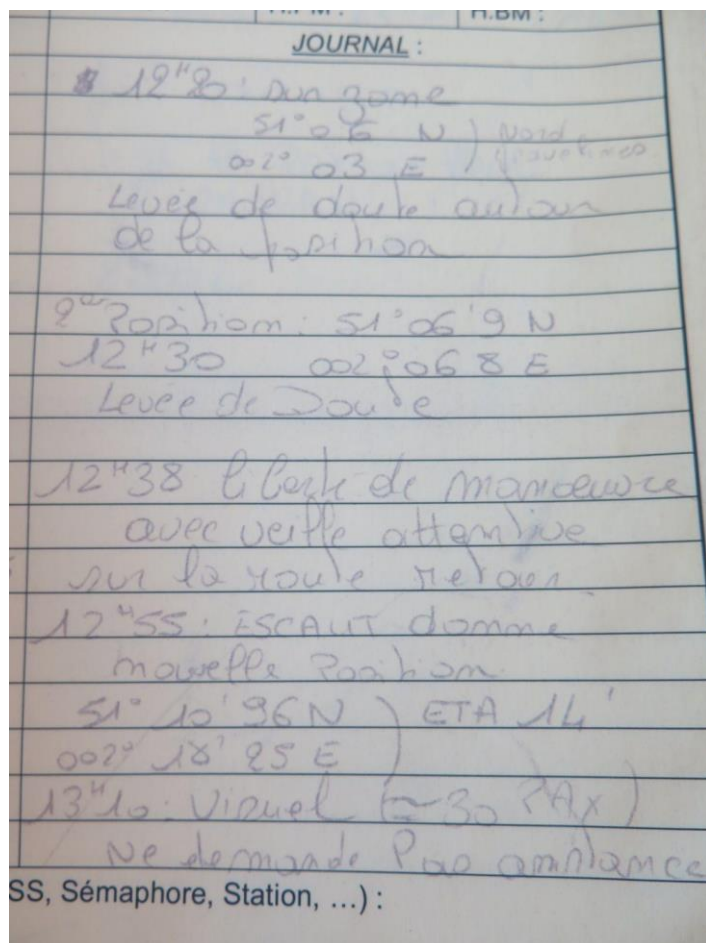 H.BM :
JOURNAL :
12H20 : sur zone
51° 06 N ) Nord
002° 03 E ) gravelines
Levée de doute autour
de la position
2e Position : 51° 06' 9 N
12H30 002° 06 8 E
Levée de Doute
12H38 liberté de manoeuvre
avec veille attentive
sur la route retour
12H55 : ESCAUT donne
nouvelle Position
51° 10' 96 N ) ETA 14'
002° 18' 25 E )
13H10 : Visuel (≃ 30 PAX)
Ne demande Pas assistance
SS, Sémaphore, Station, ...) :